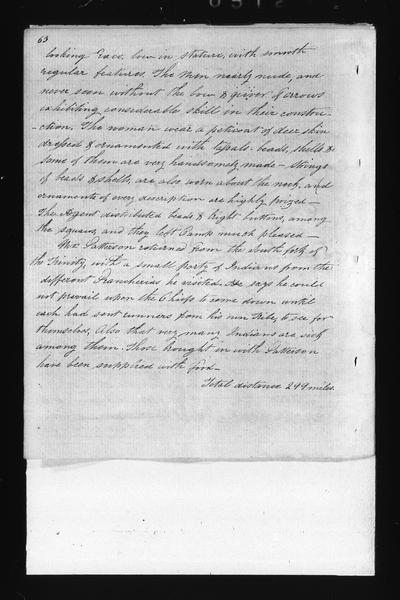 63
looking Race, low in stature, with smooth
regular features. The Men nearly nude, and
never seen without the bow & quiver of arrows
exhibiting considerable skill in their construc-
-ction. The woman wear a peticoat of deer skin
dressed & ornamented with tassels beads, shells &
some of them are very handsomely made — strings
of beads & shells, are also worn about the neck, and
ornaments of every description are highly prized —
The Agent distributed beads & bright buttons, among
the squaws, and they left Camp much pleased —
Mr. Patterson returned from the South fork of
the Trinity, with a small party of Indians from the
different Rancherias he visited. He says he could
not prevail upon the Chiefs to come down until
each had sent runners from his own Tribe, to see for
themselves, Also that very many Indians are sick
among them. Those brought in with Patterson
have been supplied with food —
Total distance 249 miles.